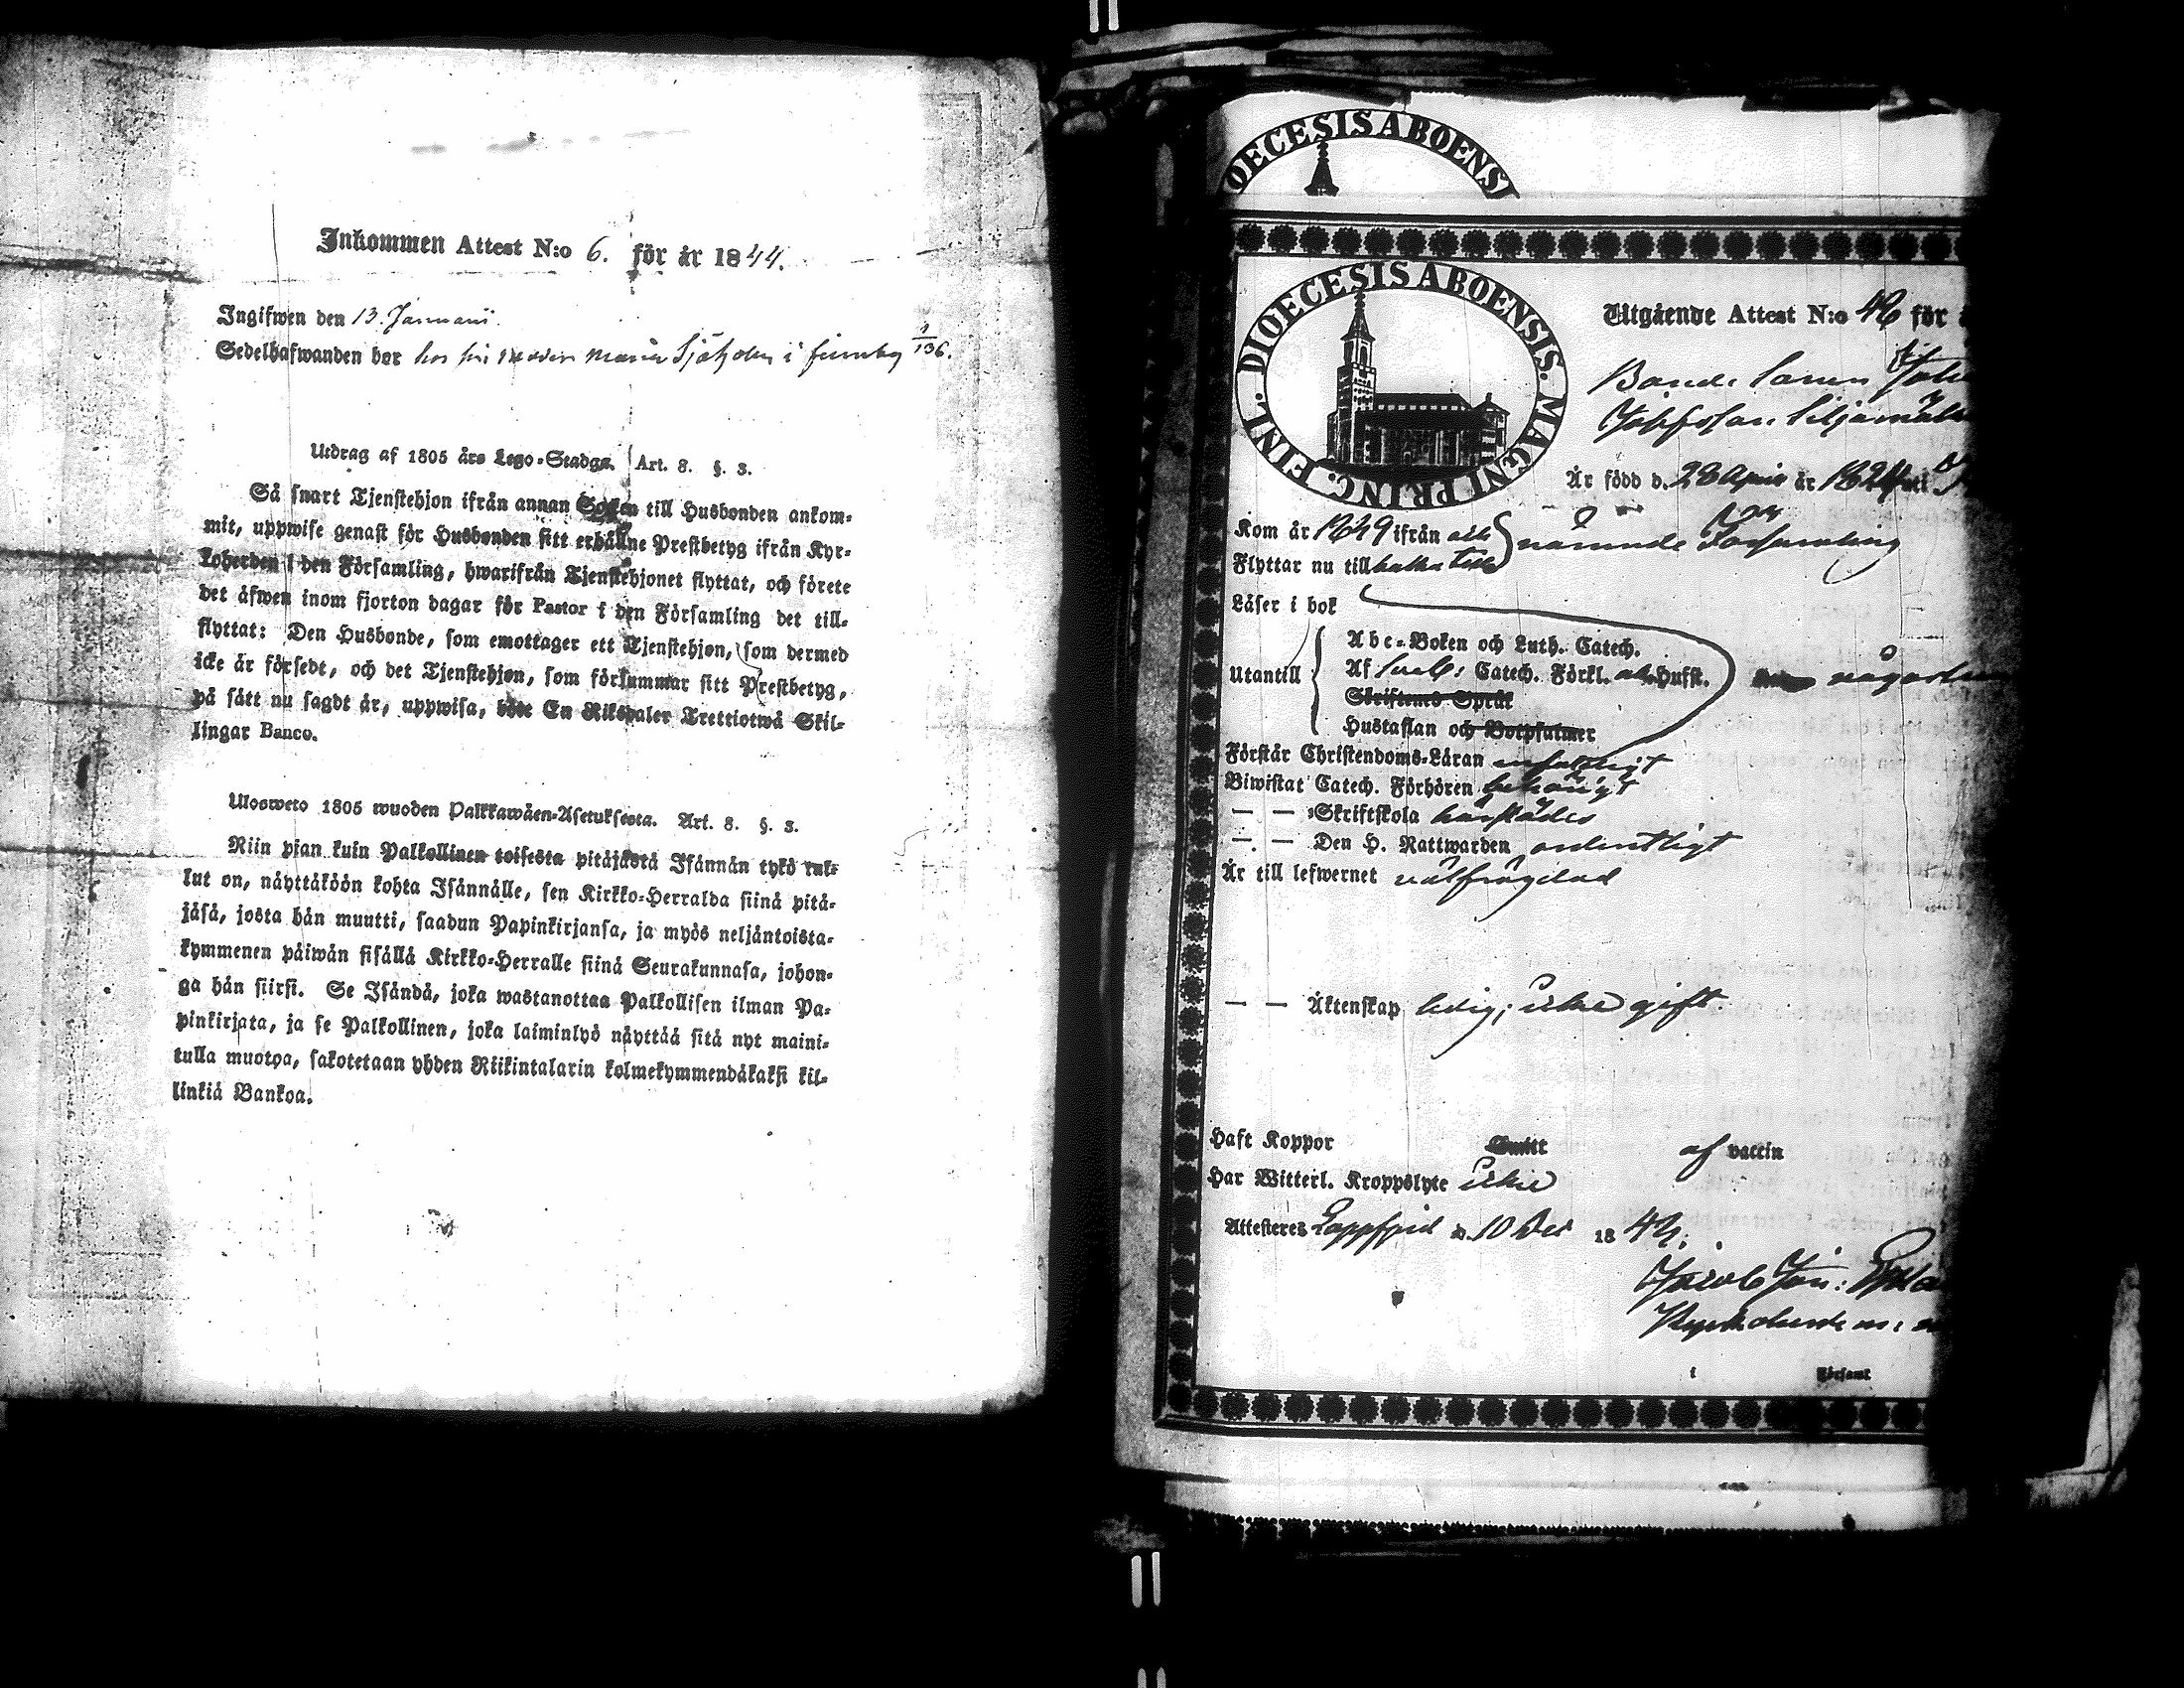 Inkommen Attest N:o 6. för år 1844.
Ingifwen den 13. Januari.
Sedelhafwanden bor hos sin moder Maria Sjöholm i finnby 1/136.
Utdrag af 1805 års Lego-Stadga. Art. 8. §. 3.
Så snart Tjenstehjon ifrån annan Socken till Husbonden ankom-
mit, uppwise genast för Husbonden sitt erhållne Prestbetyg ifrån Kyr-
koherden i den Församling, hwarifrån Tjenstehjonet flyttat, och förete
det äfwen inom fjorton dagar för Pastor i den Församling det till-
flyttat: Den Husbonde, som emottager ett Tjenstehjon, som dermed
icke är försedt, och det Tjenstehjon, som försummar sitt Prestbetyg,
på sätt nu sagdt är, uppwisa, böte En Riksdaler Trettiotwå Skil-
lingar Banco.
Ulosweto 1805 wuoden Palkkawäen-Asetuksesta. Art. 8. §. 3.
Niin pian kuin Palkollinen toisesta pitäjästä Isännän tykö tul-
lut on, näyttäköön kohta Isännälle, sen Kirkko-Herralda siinä pitä-
jäsä, josta hän muutti, saadun Papinkirjansa, ja myös neljäntoista-
kymmenen päiwän sisällä Kirkko-Herralle siinä Seurakunnasa, johon-
ga hän siirsi. Se Isändä, joka wastanottaa Palkollisen ilman Pa-
pinkirjata, ja se Palkollinen, joka laiminlyö näyttää sitä nyt maini-
tulla muotoa, sakotetaan yhden Riikintalarin kolmekymmendäkaksi kil-
linkiä Bankoa.
OECESIS ABOENSI
DIOECESIS ABOENSIS. MAGNI PRINC. FINL.
Utgående Attest N:o 42 för
Bonde sonen
Är född d. 28 April år 1824 uti
Kom år ifrån
Flyttar nu till nämnde Församling
Läser i bok
Utantill
Abe-Boken och Luth. Catech.
Af Catech. Förkl. Hust.
Skriftenes Språk
Hustaflan och Botpsalmer
Förstår Christendoms-Läran enfaldigt
Biwistat Catech. Förhören behörigt
— — Skriftskola härstädes
— — Den H. Nattwarden ordentligt
Är till lefwernet välfrägdad
— — Äktenskap ledig; icke gift
Haft Koppor af vaccin
Har Witterl. Kroppslyte icke
Attesteres Lappfjerd d. 10 Dec 1842.
Jacob Joh:
i Församl